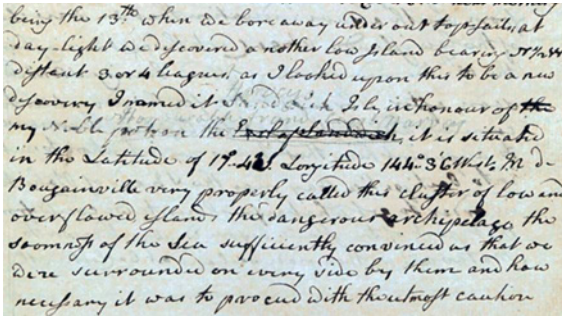 being the 13th when we bore away under out topsails, at
day-light we discovered a nother low Island bearing
distant 3 or 4 leagues, as I looked upon this to be a new
discovery I named it in honour of the
my Noble patron the it is situated
in the Latitude of 17°.4 Longitude 144°.36 West, M. de
Bougainville very properly called this cluster of low and
overflowed islands the dangerous archipelago the
smomness of the Sea sufficiently convinced us that we
were surrounded on every side by them and how
necessary it was to proceed with the utmost caution